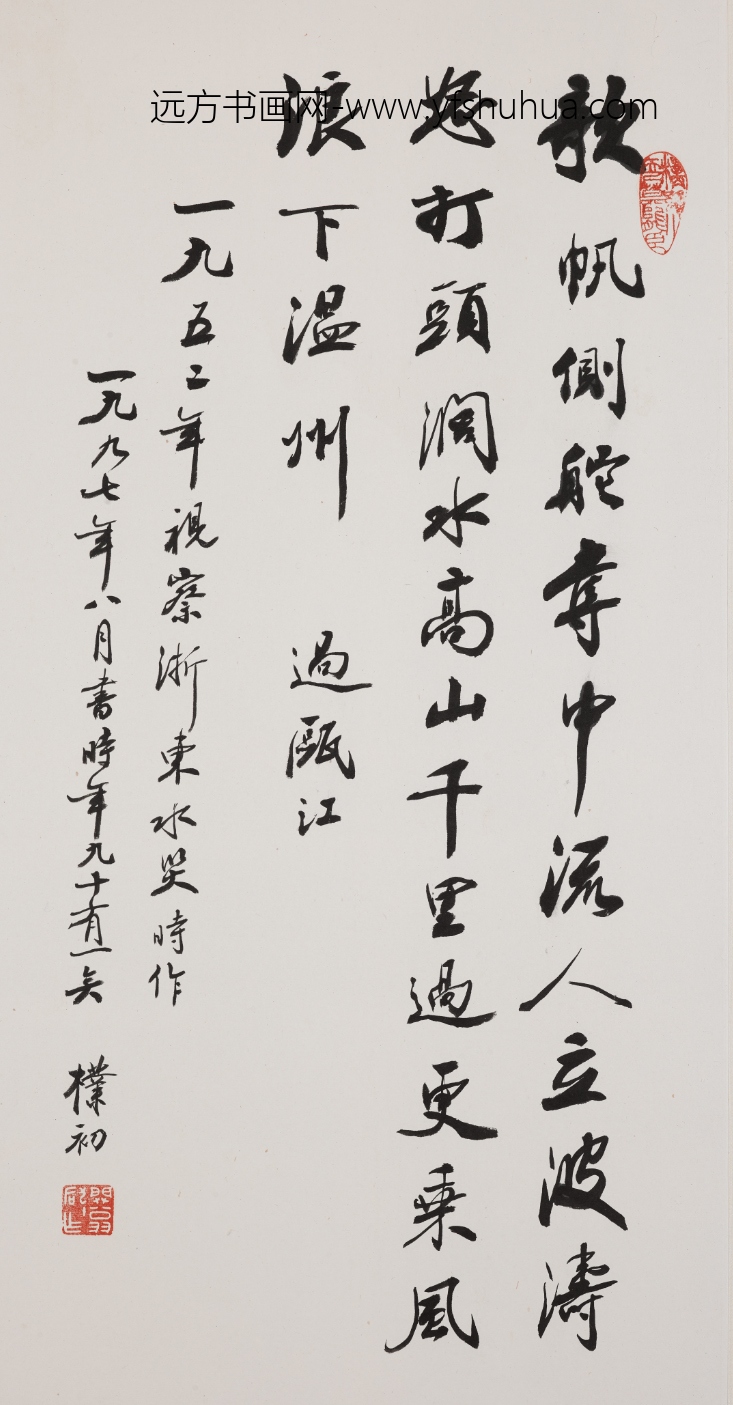 远方书画网-www.yfshuhua.com
欹帆側舵奪中流人立波濤
怒打頭濶水高山千里過更乘風
浪下温州 過甌江
一九五二年視察浙東水災時作
一九九七年八月書時年九十有一矣 樸初